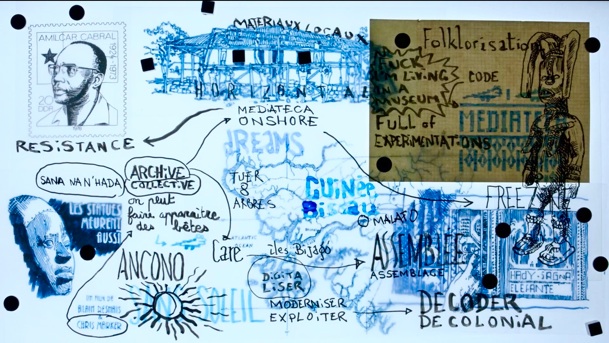 AMILCAR CABRAL
1924 1973
RESISTANCE
MATERIAUX LOCAUX
HORIZONTAL
MEDIATECA
ONSHORE
Folklorisation
LIVING
IN A
MUSEUM
CODE
FULL OF
EXPERIMENTATIONS
MEDIATECA
DREAMS
SANA NAN'HADA
ARCHIVE
COLLECTIVE
on peut
faire apparaître
des bêtes
TUER
8
ARBRES
GUINée
Bissau
FREE
LES STATUES
MEURENT
AUSSI
UN FILM DE
ALAIN RESNAIS
&
CHRIS MARKER
ANCONO
SOLEIL
Care
îles Bijago
DIGITA
LISER
MODERNISER
EXPLOITER
MALAFO
ASSEMBLEE
ASSEMBLAGE
ELEFANTE
DECODER
DE COLONIAL